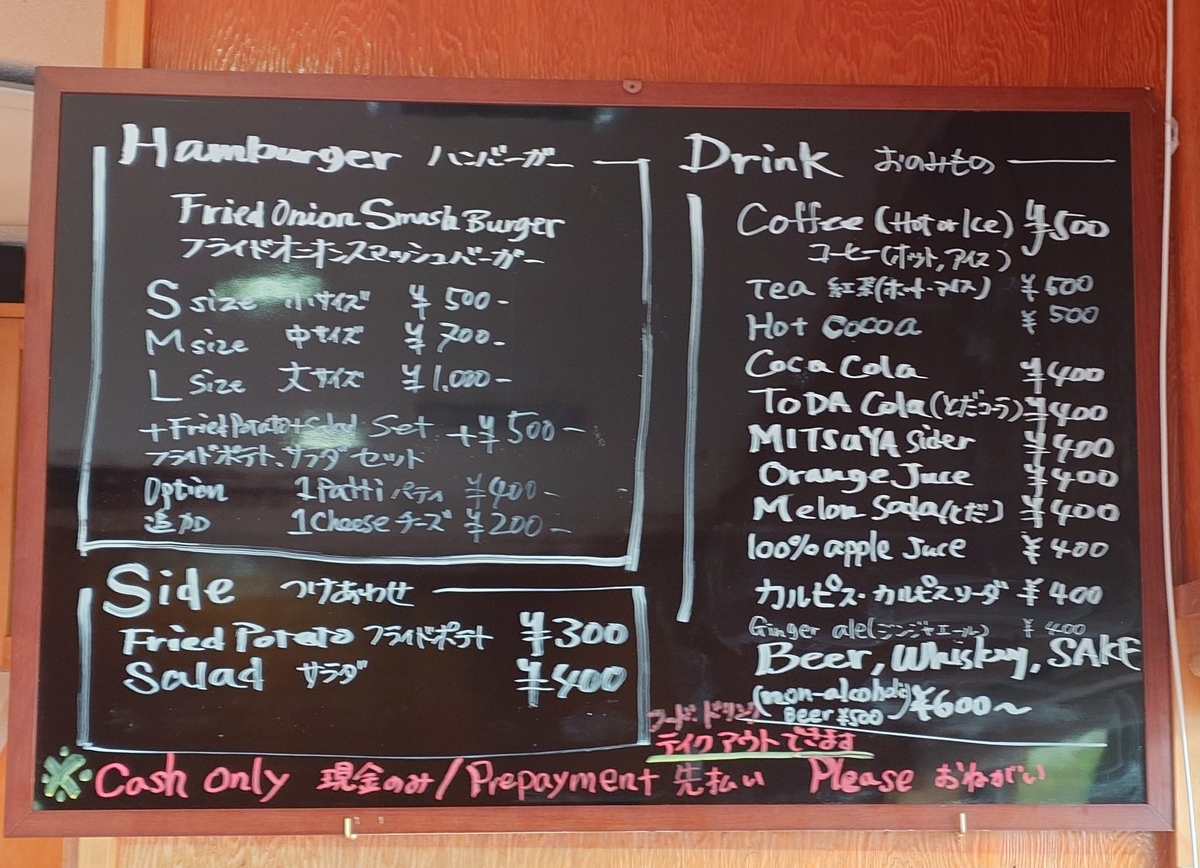 Hamburger ハンバーガー
Fried Onion Smash Burger
フライドオニオンスマッシュバーガー
S size 小サイズ ¥500-
M size 中サイズ ¥700-
L size 大サイズ ¥1,000-
+Fried Potato+Salad Set +¥500-
フライドポテト、サラダセット
Option 1Patti パティ ¥400-
追加 1Cheese チーズ ¥200-
Side つけあわせ
Fried Potato フライドポテト ¥300
Salad サラダ ¥400
Drink おのみもの
Coffee (Hot or Ice) ¥500
コーヒー(ホット,アイス)
Tea 紅茶(ホット・アイス) ¥500
Hot Cocoa ¥500
Coca Cola ¥400
TODA Cola(とだコーラ) ¥400
MITSUYA Sider ¥400
Orange Juce ¥400
Melon Soda(とだ) ¥400
100% apple Juce ¥400
カルピス・カルピスソーダ ¥400
Ginger ale(ジンジャエール) ¥400
Beer, Whiskey, SAKE
(non-alcoholic Beer ¥500) ¥600〜
フード・ドリンク
テイクアウトできます
※Cash only 現金のみ/Prepayment 先払い Please おねがい